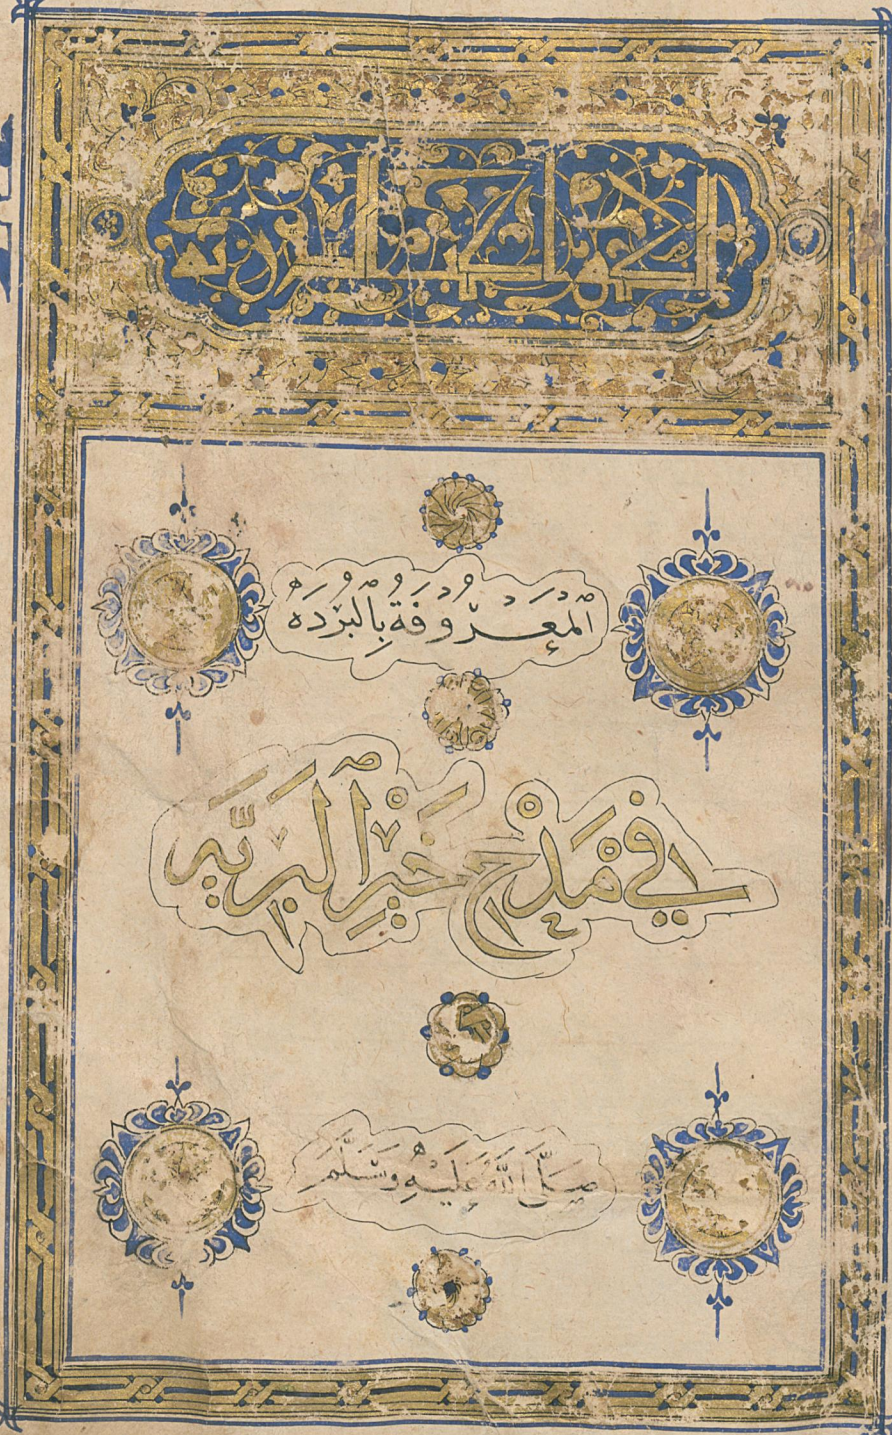 الكواكب الدرية
المَعْرُوفَةُ بِالْبُرْدَه
فِي مَدْحِ خَيْرِ الْبَرِيَّه
صَلَّى اللهُ عَلَيْهِ وَسَلَّمَ